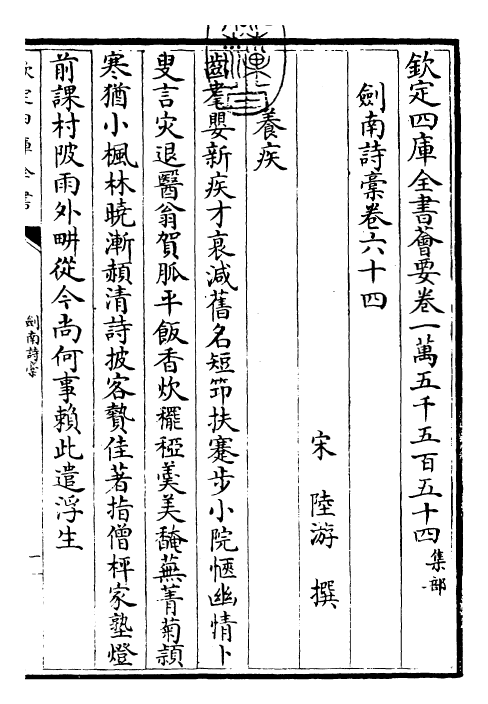 欽定四庫全書薈要卷一萬五千五百五十四集部
劍南詩稾卷六十四
宋 陸游 撰
養疾
齒耄嬰新疾才衰減舊名短笻扶蹇步小院愜幽情卜
叟言灾退醫翁賀脈平飯香炊䆉稏羮美醃蕪菁菊頴
寒猶小楓林曉漸頳清詩披客贄佳著指僧枰家塾燈
前課村陂雨外畊從今尚何事賴此遣浮生
欽定四庫全書
劍南詩稾
一